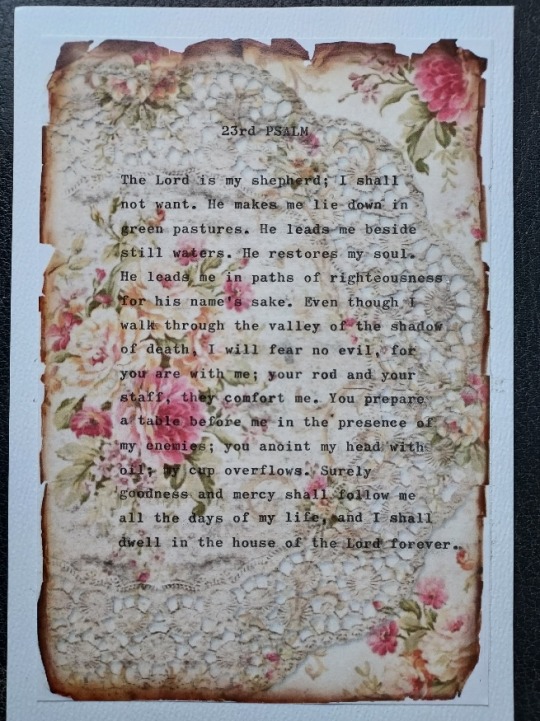 23rd PSALM
The Lord is my shepherd; I shall
not want. He makes me lie down in
green pastures. He leads me beside
still waters. He restores my soul.
He leads me in paths of righteousness
for his name's sake. Even though I
walk through the valley of the shadow
of death, I will fear no evil, for
you are with me; your rod and your
staff, they comfort me. You prepare
a table before me in the presence of
my enemies; you anoint my head with
oil; my cup overflows. Surely
goodness and mercy shall follow me
all the days of my life, and I shall
dwell in the house of the Lord forever.